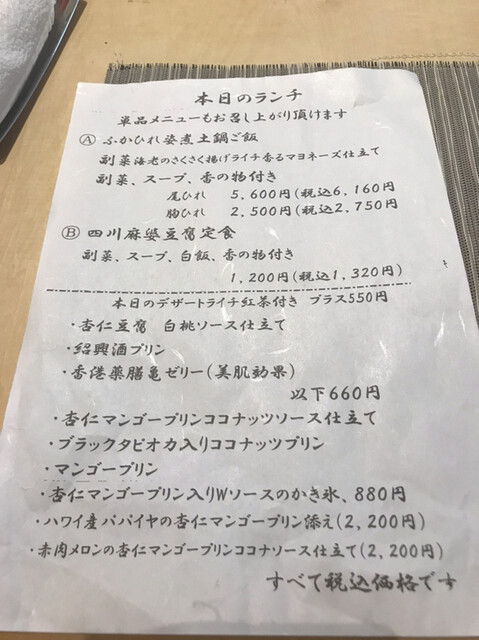 本日のランチ
単品メニューもお召し上がり頂けます
Ⓐ ふかひれ姿煮土鍋ご飯
副菜海老のさくさく揚げライチ香るマヨネーズ仕立て
副菜、スープ、香の物付き
尾ひれ 5,600円(税込6,160円
胸ひれ 2,500円(税込2,750円
Ⓑ 四川麻婆豆腐定食
副菜、スープ、白飯、香の物付き
1,200円(税込1,320円)
本日のデザートライチ紅茶付き プラス550円
・杏仁豆腐 白桃ソース仕立て
・紹興酒プリン
・香港薬膳亀ゼリー(美肌効果)
以下660円
・杏仁マンゴープリンココナッツソース仕立て
・ブラックタピオカ入りココナッツプリン
・マンゴープリン
・杏仁マンゴープリン入りWソースのかき氷、880円
・ハワイ産パパイヤの杏仁マンゴープリン添え(2,200円)
・赤肉メロンの杏仁マンゴープリンココナソース仕立て(2,200円)
すべて税込価格です